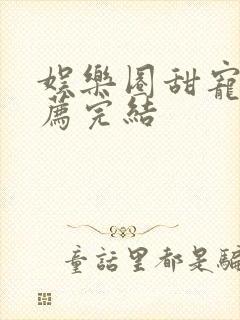 娛樂圈甜寵
薦完結
童話里都是騙